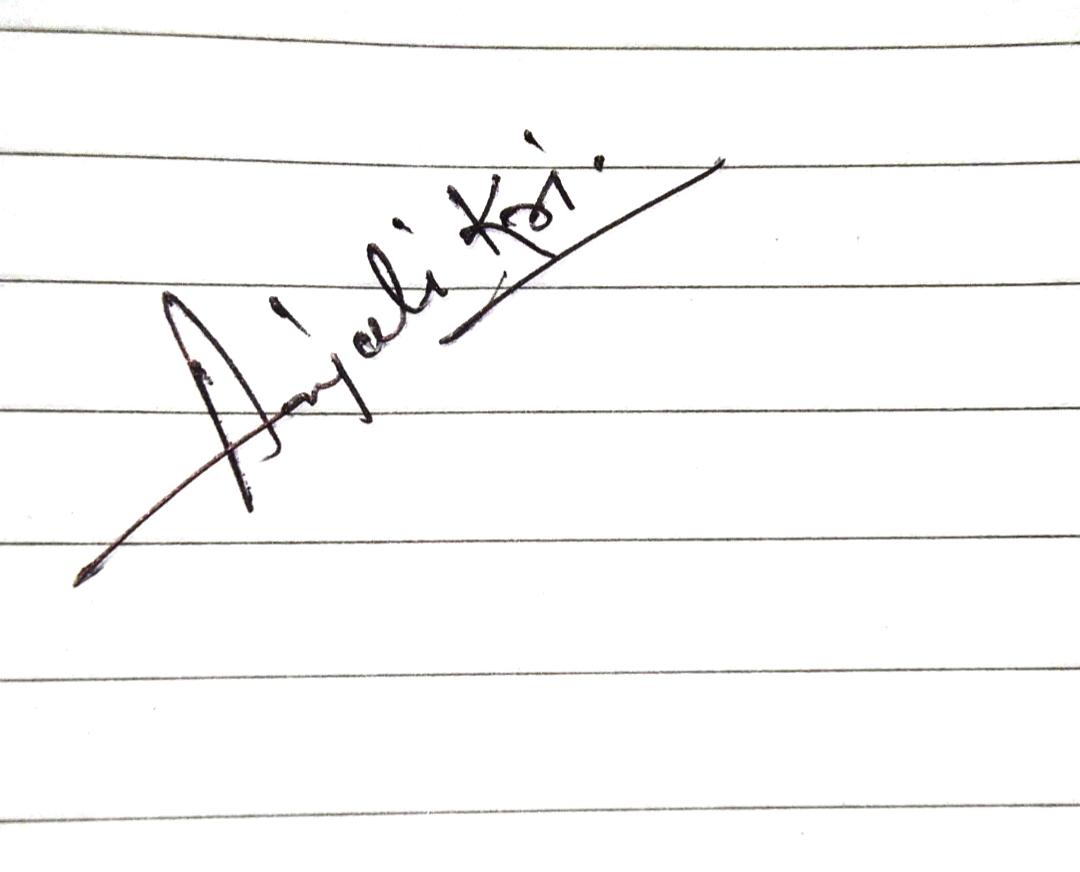 Anjali Kori.